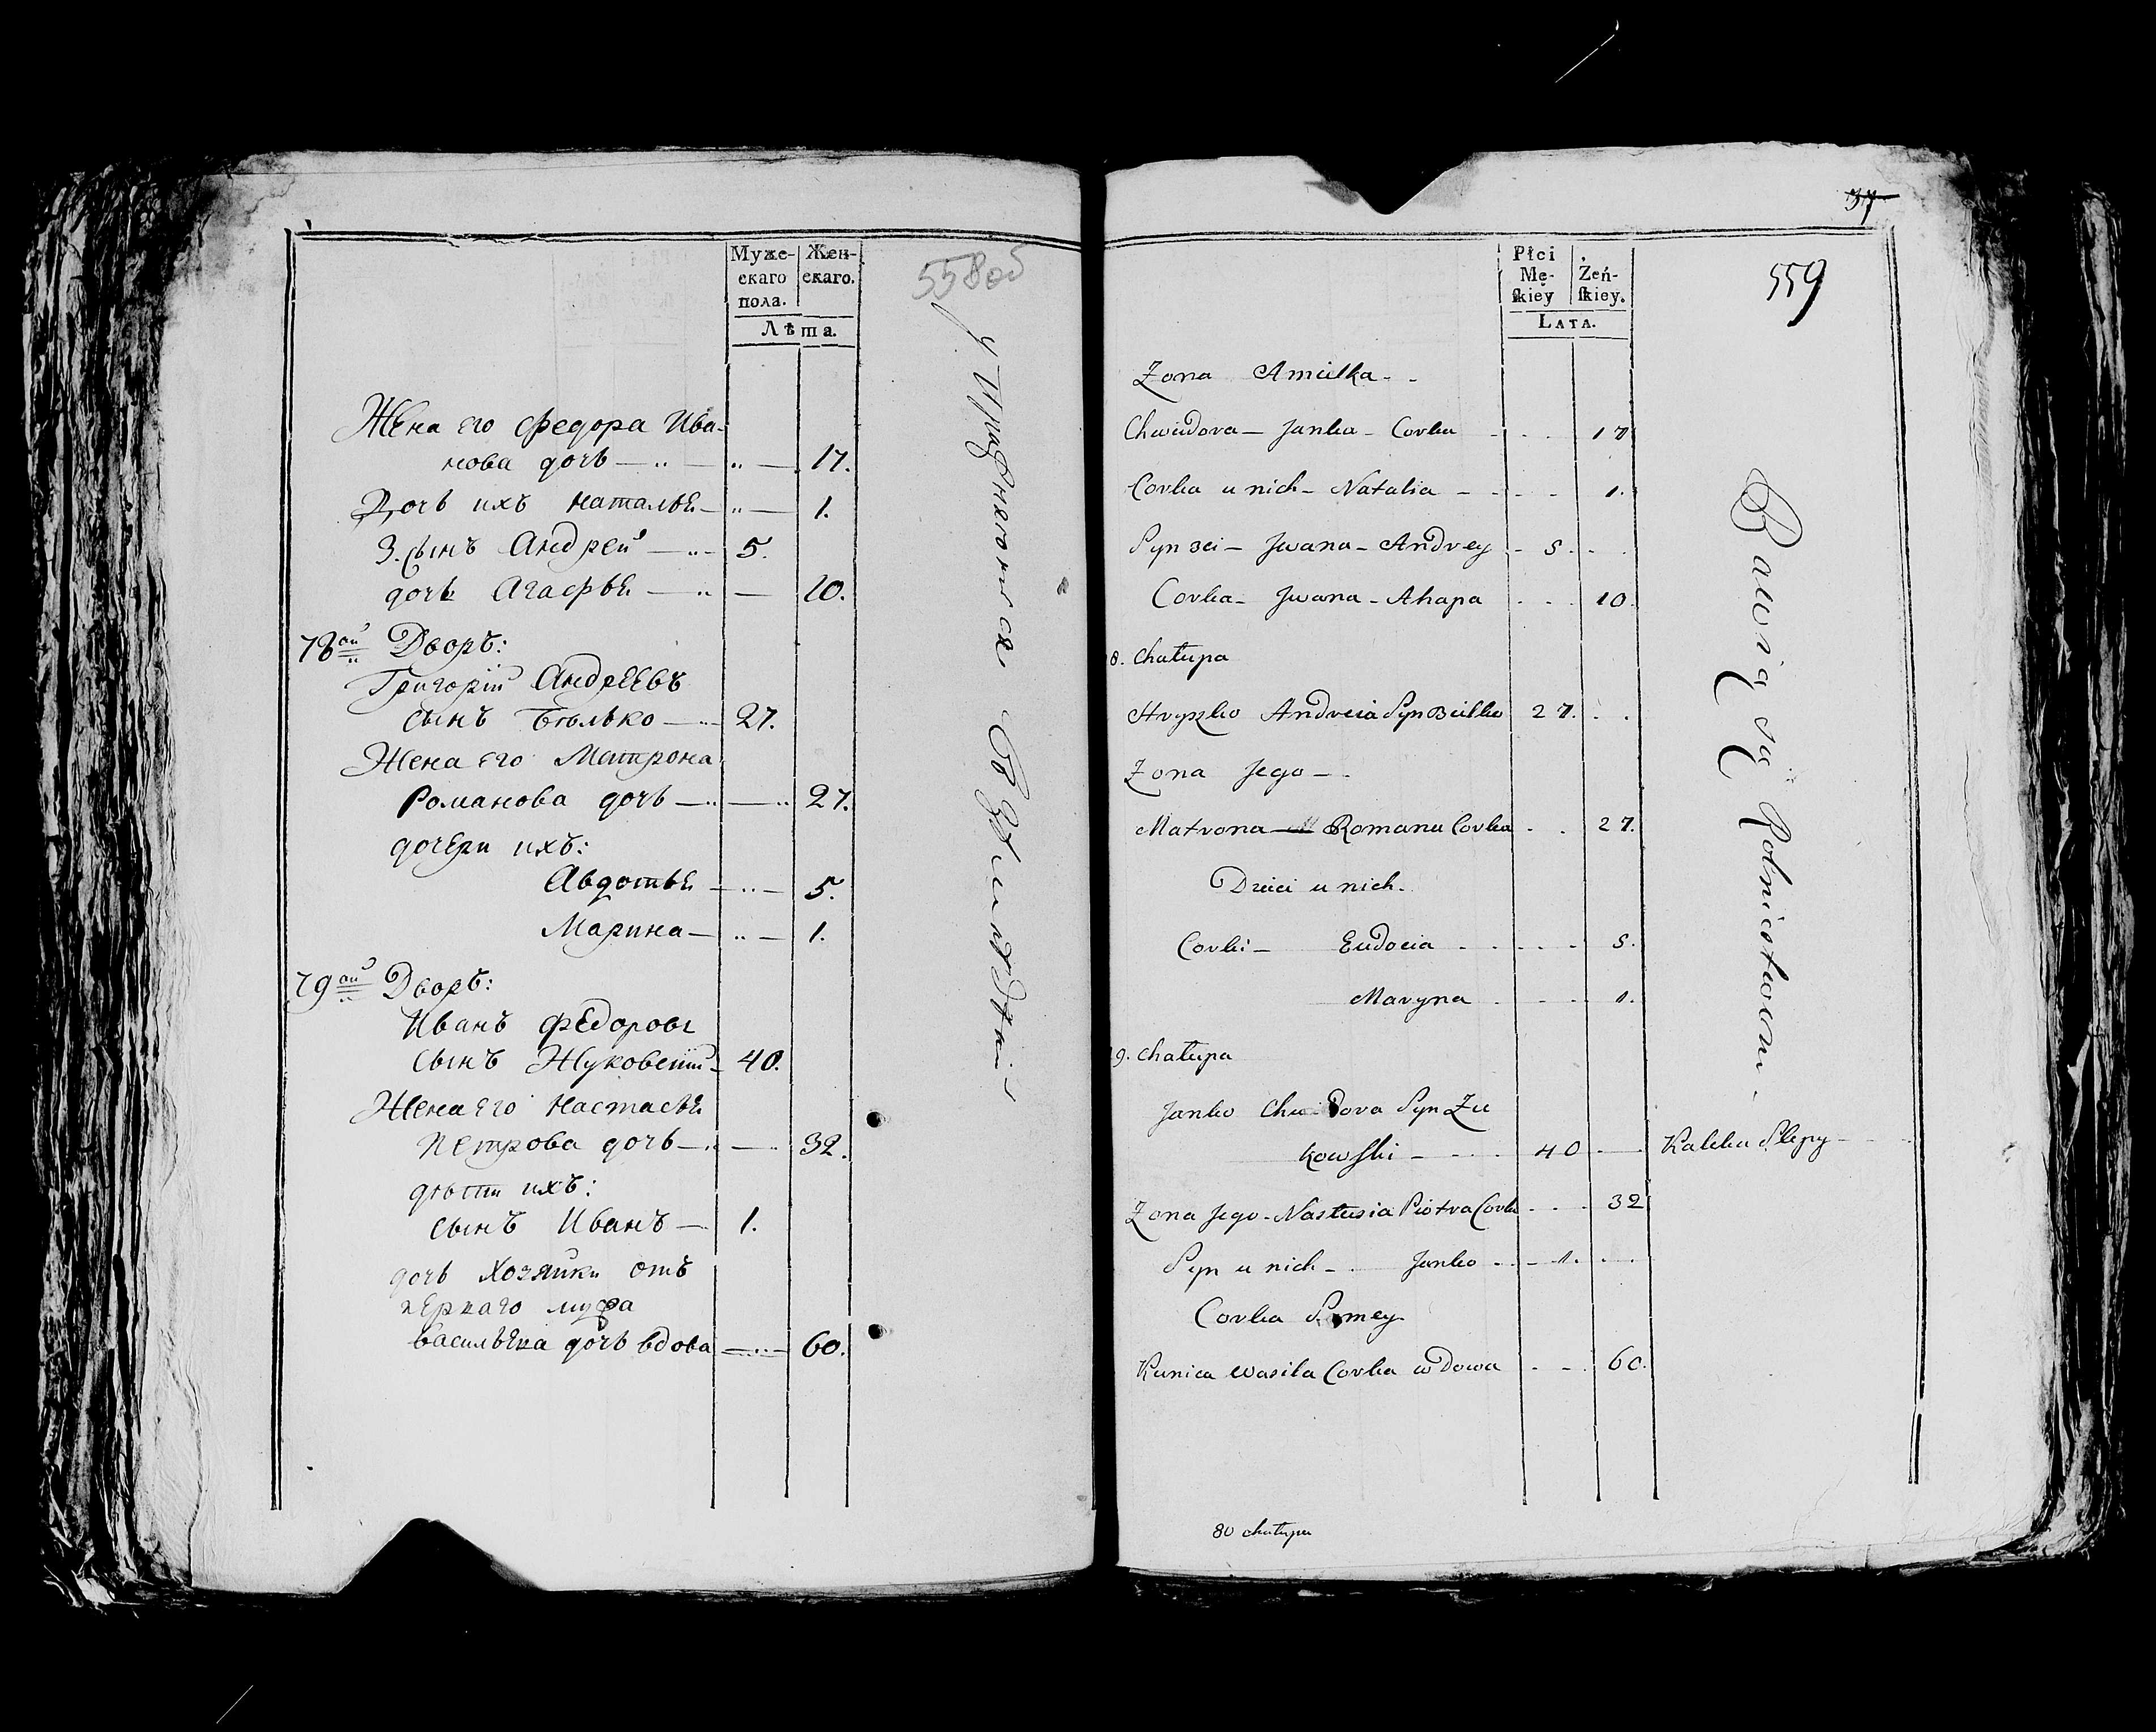 Муже-
скаго
пола.
Жен-
скаго.
Лѣта.
558об
Жена его Федора Ива-
нова дочь — 17.
Дочь ихъ Наталья — 1.
3. сынъ Андрей — 5.
дочь Агафья — 10.
78ой Дворъ:
Григорій Андреевъ
сынъ Бѣлько — 27.
Жена его Матрона
Романова дочь — 27.
дочери ихъ:
Авдотья — 5.
Марина — 1.
79ой Дворъ:
Иванъ Федоровъ
сынъ Жуковскій 40.
Жена его Настасья
Петрова дочь — 32.
дѣти ихъ:
сынъ Иванъ — 1.
дочь Хозяйки отъ
перваго мужа
Васильева дочь вдова — 60.
Упражняются
37
Płci
Mę-
skiey
Żeń-
skiey.
LATA.
559
Zona Amielka
Chwiedora — Janka — Corka 17
Corka u nich — Natalia 1.
Syn 3ci — Jwana — Andrey 5.
Corka — Jwana — Ahapa 10.
8. Chałupa
Hryszko Andreia Syn Bielko 27.
Zona Jego —
Matrona — Romana Corka 27.
Dzieci u nich.
Corki — Eudocia 5.
Maryna 1.
9. Chałupa
Janko Chwedora Syn Zu
kowski — 40 — Kaleka Slepy
Zona Jego — Nastusia Piotra Corka 32
Syn u nich — Janko 1.
Corka
Wasila Corka wdowa 60.
Bawią się Rolnictwem.
80 chałupa